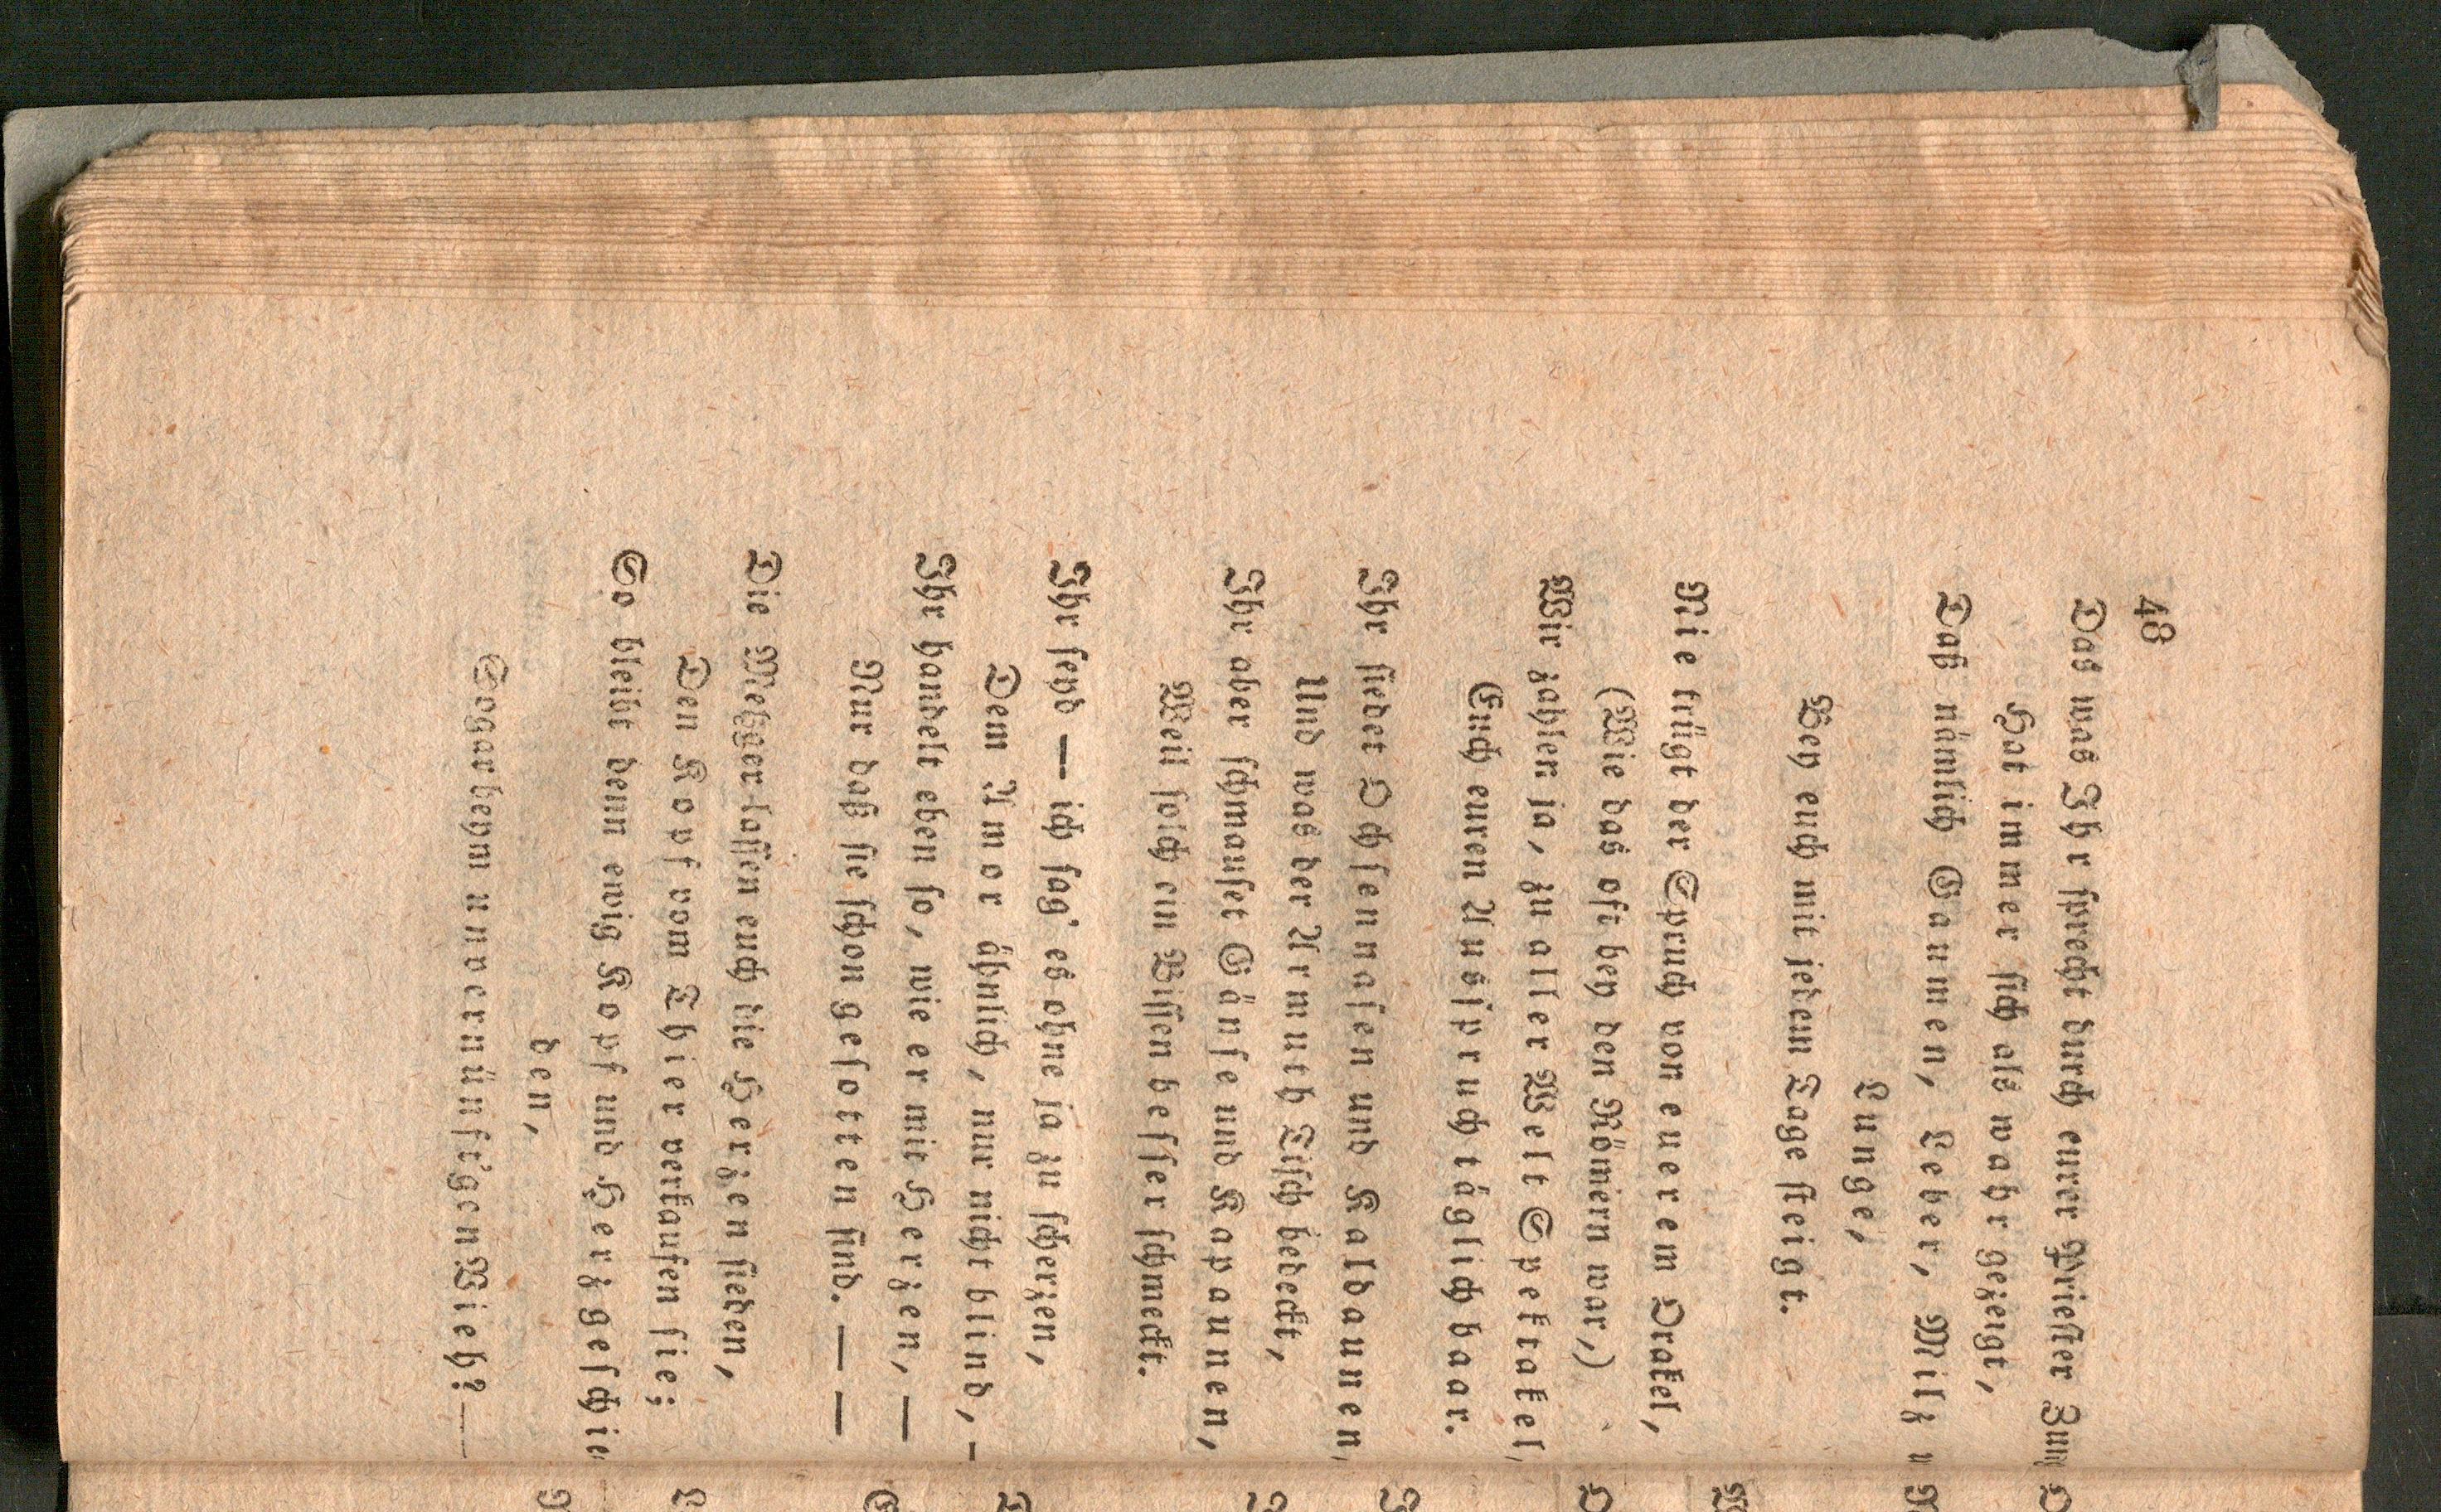 48
Das was Ihr sprecht durch eurer Priester
Hat immer sich als wahr gezeigt,
Daß nämlich Gaumen, Leber, Milz
Lunge,
Bey euch mit jedem Tage steigt.
Nie trügt der Spruch von euerem Orakel,
(Wie das oft bey den Römern war,)
Wir zahlen ja, zu aller Welt Spektakel,
Euch euren Ausspruch täglich baar.
Ihr siedet Ochsennasen und Kaldaunen,
Und was der Armuth Tisch bedeckt,
Ihr aber schmauset Gänse und Kapaunen,
Weil solch ein Bissen besser schmeckt.
Ihr seyd — ich sag' es ohne ja zu scherzen,
Dem Amor ähnlich, nur nicht blind, —
Ihr handelt eben so, wie er mit Herzen, —
Nur daß sie schon gesotten sind. — —
Die Metzger lassen euch die Herzen sieden,
Den Kopf vom Thier verkaufen sie;
So bleibt denn ewig Kopf und Herz geschie
den,
Sogar beym unvernünft'gen Vieh? —